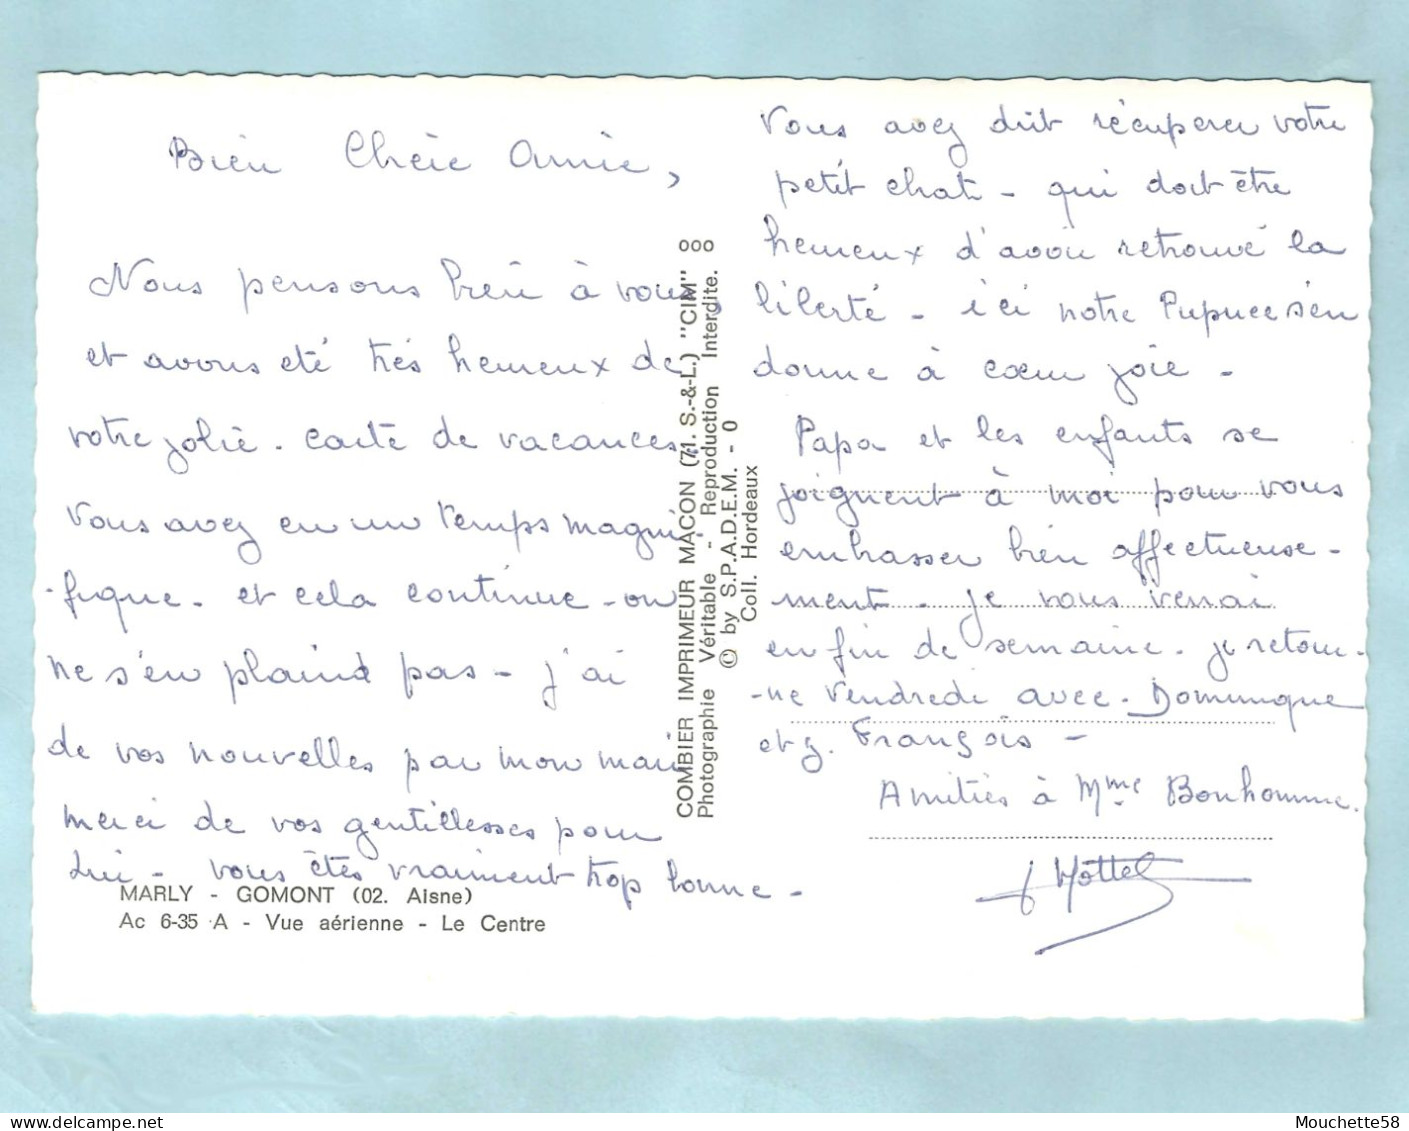 Bien Chère Amie,
Nous pensons bien à vous,
et avons été très heureux de
votre jolie. carte de vacances.
Vous avez eu un temps magni
-fique. et cela continue - on
ne s'en plaind pas - j'ai
de vos nouvelles par mon mari
merci de vos gentillesses pour
Lui - vous êtes vraiment trop bonne -
MARLY - GOMONT (02. Aisne)
Ac 6-35 A - Vue aérienne - Le Centre
COMBIER IMPRIMEUR MACON (71. S.-&-L.) "CIM" ooo
Photographie Véritable - Reproduction Interdite.
© by S.P.A.D.E.M. - 0
Coll. Hordeaux
Vous avez dût récuperer votre
petit chat - qui doit être
heureux d'avoir retrouvé la
liberté - ici notre Pupuce s'en
donne à cœur joie -
Papa et les enfants se
joignent à moi pour vous
embrasser bien affectueuse-
ment - je vous verrai
en fin de semaine. je retour-
-ne Vendredi avec - Dominique
et J. François -
Amitiés à Mme Bonhomme.
Hottel
Mouchette58